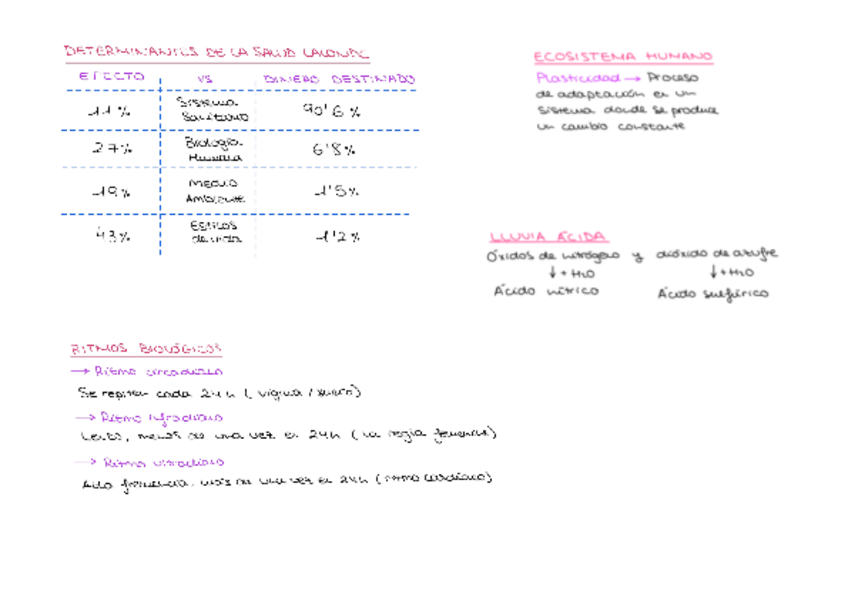 DETERMINANTES DE LA SALUD LALONDE
EFECTO VS DINERO DESTINADO
11% Sistema Sanitario 90'6%
27% Biología Humana 6'8%
19% Medio Ambiente 1'5%
43% Estilos de vida 1'2%
ECOSISTEMA HUMANO
Plasticidad → Proceso
de adaptación en un
sistema donde se produce
un cambio constante
LLUVIA ÁCIDA
Óxidos de nitrógeno y dióxido de azufre
↓ + H2O ↓ + H2O
Ácido nítrico Ácido sulfúrico
RITMOS BIOLÓGICOS
→ Ritmo circadiano
Se repiten cada 24h (vigilia / sueño)
→ Ritmo infradiano
Lento, menos de una vez en 24h (la regla femenina)
→ Ritmo ultradiano
Alta frecuencia, más de una vez en 24h (ritmo cardíaco)